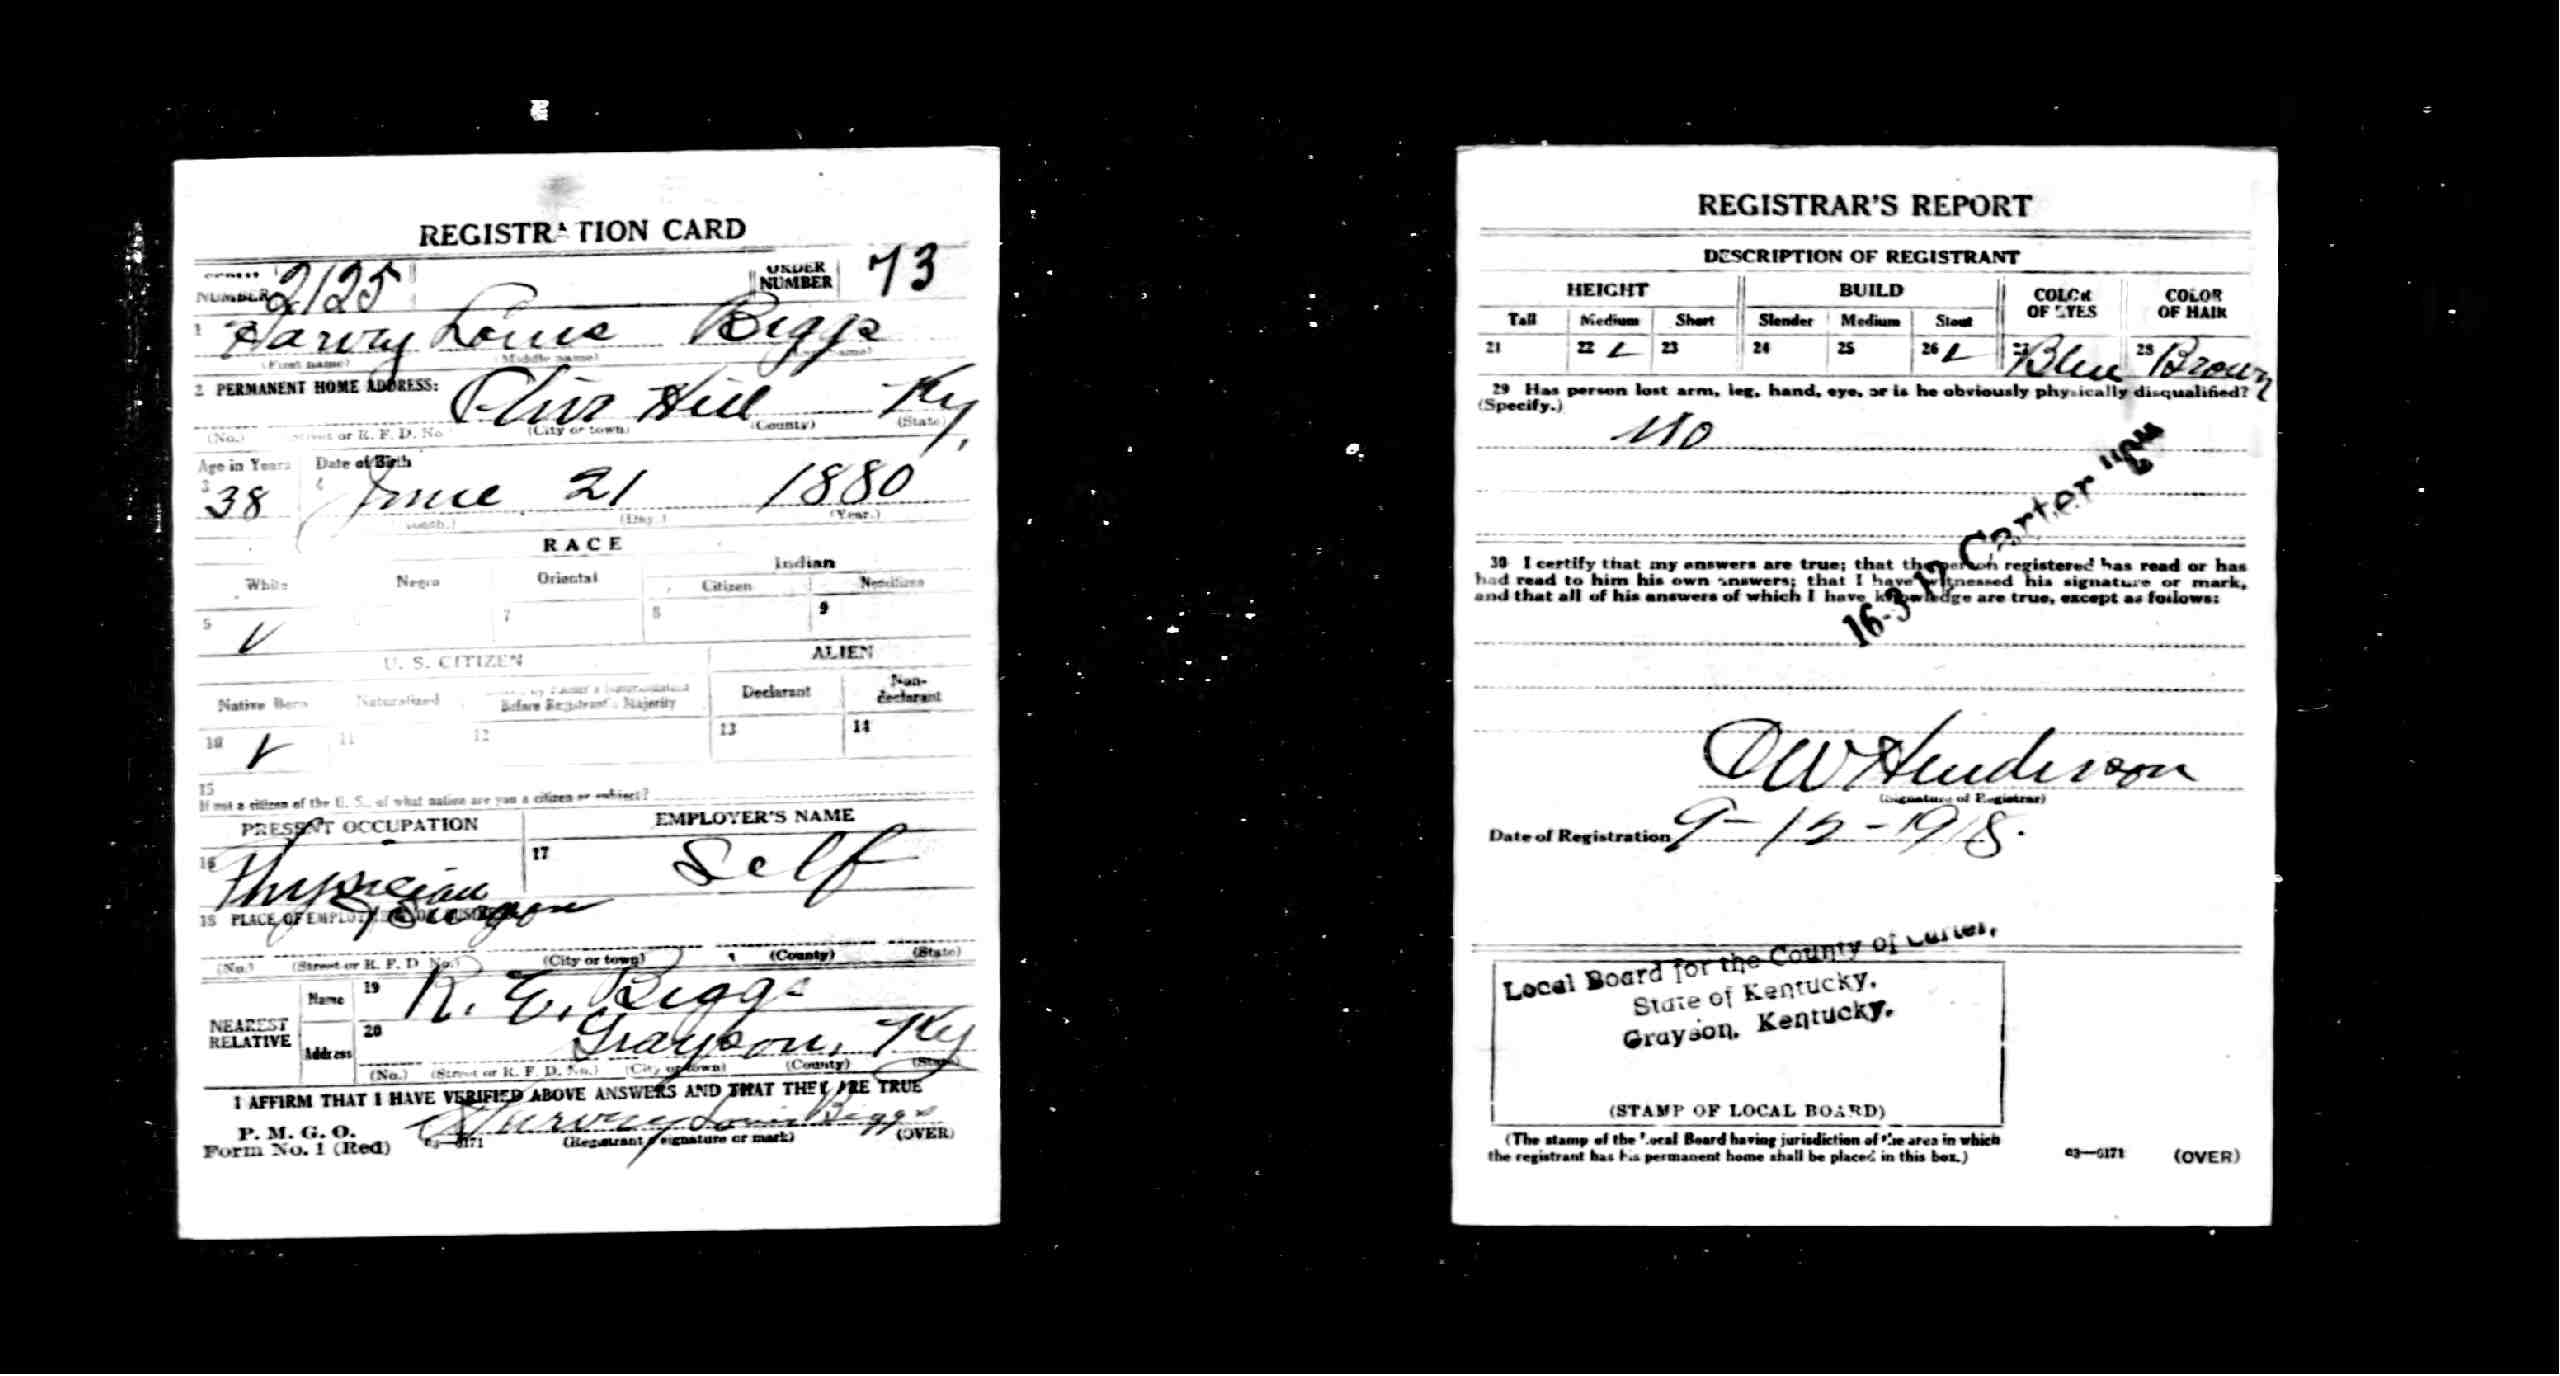 REGISTRATION CARD
NUMBER 2125 ORDER NUMBER 73
1 Harvey Louis Biggs
(First name) (Middle name) name)
2 PERMANENT HOME ADDRESS: Olive Hill Ky.
(No.) Street or R. F. D. No. (City or town) (County) (State)
Age in Years Date of Birth
3 38 4 June 21 1880
(Month.) (Day.) (Year.)
RACE
White Negro Oriental Indian
Citizen Noncitizen
5 V 7 8 9
U. S. CITIZEN ALIEN
Native Born Naturalized Citizen by Father's Naturalization Before Registrant's Majority Declarant Non-declarant
10 V 11 12 13 14
15
If not a citizen of the U. S., of what nation are you a citizen or subject?
PRESENT OCCUPATION EMPLOYER'S NAME
16 Physician & Surgeon 17 Self
18 PLACE OF EMPLOYMENT OR BUSINESS
(No.) (Street or R. F. D. No.) (City or town) (County) (State)
NEAREST RELATIVE
Name 19 R. E. Biggs
Address 20 Grayson, Ky
(No.) (Street or R. F. D. No.) (City or town) (County) (State)
I AFFIRM THAT I HAVE VERIFIED ABOVE ANSWERS AND THAT THEY ARE TRUE
P. M. G. O.
Form No. 1 (Red) 03—6171 Harvey Louis Biggs
(Registrant's signature or mark) (OVER)
REGISTRAR'S REPORT
DESCRIPTION OF REGISTRANT
HEIGHT BUILD COLOR OF EYES COLOR OF HAIR
Tall Medium Short Slender Medium Stout
21 22 ✓ 23 24 25 26 ✓ 27 Blue 28 Brown
29 Has person lost arm, leg, hand, eye, or is he obviously physically disqualified?
(Specify.)
No
16-3-17 Carter
30 I certify that my answers are true; that the person registered has read or has
had read to him his own answers; that I have witnessed his signature or mark,
and that all of his answers of which I have knowledge are true, except as follows:
O W Henderson
(Signature of Registrar)
Date of Registration 9-12-1918.
Local Board for the County of Carter,
State of Kentucky,
Grayson, Kentucky.
(STAMP OF LOCAL BOARD)
(The stamp of the Local Board having jurisdiction of the area in which
the registrant has his permanent home shall be placed in this box.)
03—6171 (OVER)